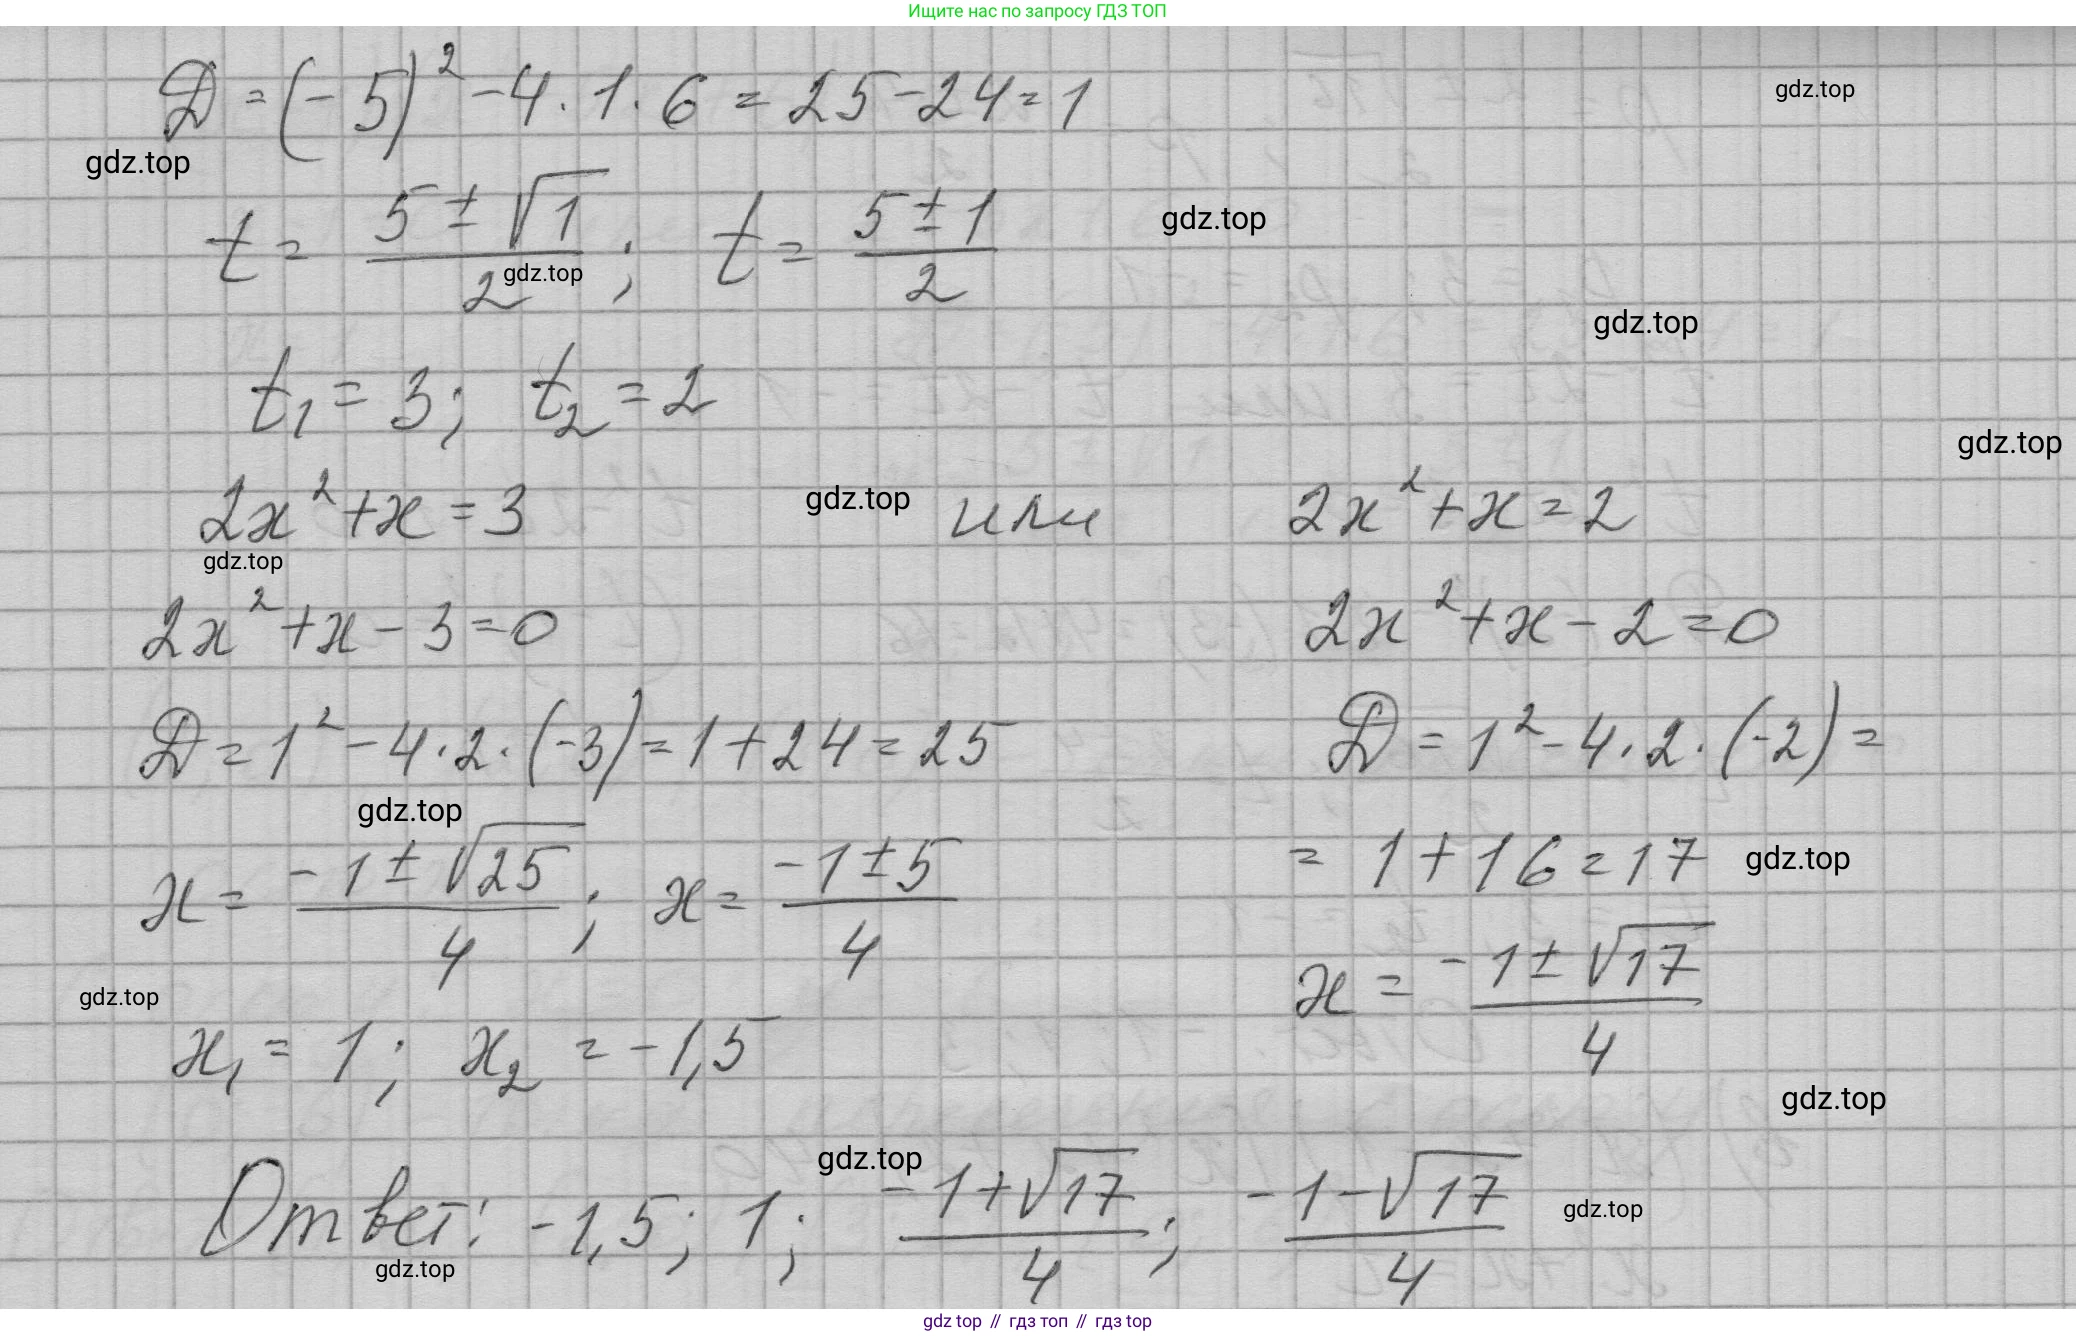 Ищите нас по запросу ГДЗ ТОП
D = (-5)² - 4 · 1 · 6 = 25 - 24 = 1
gdz.top
gdz.top
t = (5 ± √1)/2 ; t = (5 ± 1)/2
gdz.top
gdz.top
gdz.top
t₁ = 3; t₂ = 2
gdz.top
2x² + x = 3 или 2x² + x = 2
gdz.top
gdz.top
2x² + x - 3 = 0 2x² + x - 2 = 0
D = 1² - 4 · 2 · (-3) = 1 + 24 = 25 D = 1² - 4 · 2 · (-2) =
gdz.top
= 1 + 16 = 17
gdz.top
x = (-1 ± √25)/4 ; x = (-1 ± 5)/4
x = (-1 ± √17)/4
gdz.top
x₁ = 1; x₂ = -1,5
gdz.top
gdz.top
Ответ: -1,5; 1; (-1 + √17)/4 ; (-1 - √17)/4
gdz.top
gdz.top
gdz top // гдз топ // гдз top